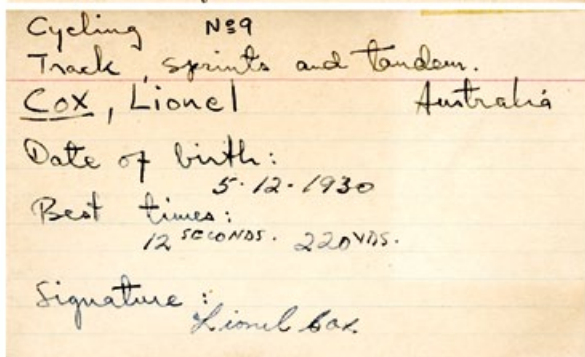 Cycling Nº9
Track, sprints and tandem.
Cox, Lionel Australia
Date of birth:
5.12.1930
Best times:
12 SECONDS. 220 YDS.
Signature:
Lionel Cox.